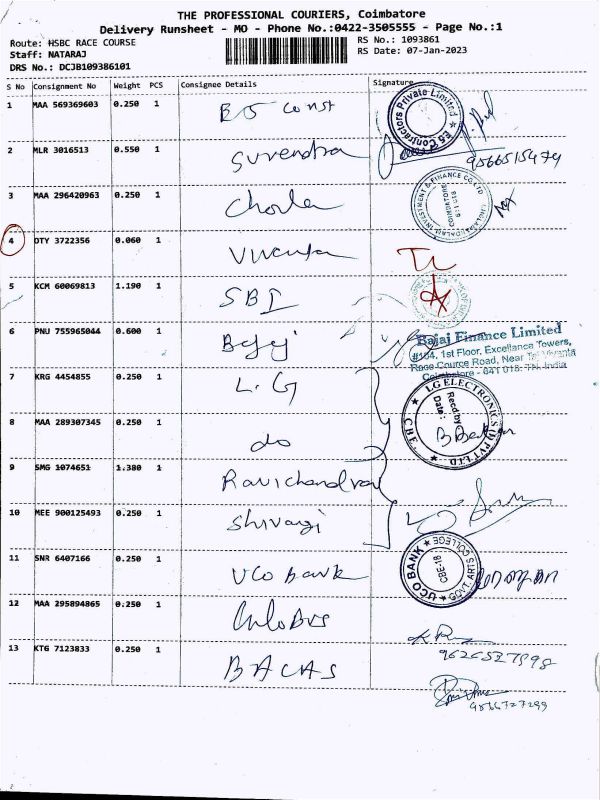 THE PROFESSIONAL COURIERS, Coimbatore
Delivery Runsheet - MO - Phone No.:0422-3505555 - Page No.:1
Route: HSBC RACE COURSE
RS No.: 1093861
Staff: NATARAJ
RS Date: 07-Jan-2023
DRS No.: DCJB109386101
S No Consignment No Weight PCS Consignee Details Signature
1 MAA 569369603 0.250 1 E5 Const
E5 Contractors Private Limited
2 MLR 3016513 0.550 1 Surendra
9566515474
3 MAA 296420963 0.250 1 Chola
INVESTMENT & FINANCE CO. LTD
COIMBATORE
4 DTY 3722356 0.060 1
5 KCM 60069813 1.190 1 SBI
6 PNU 755965044 0.600 1 Bajaj
Bajaj Finance Limited
#164, 1st Floor, Excellance Towers,
Race Cource Road, Near Taj Vivanta
Coimbatore - 641 018. TN. India
7 KRG 4454855 0.250 1 L.G
LG ELECTRONICS (I) PVT LTD
CBE
Recd by
Date :
8 MAA 289307345 0.250 1 do
9 SMG 1074651 1.380 1 Ravichandran
10 MEE 900125493 0.250 1 Shivaji
11 SNR 6407166 0.250 1 UCO Bank
UCO BANK
GOVT. ARTS COLLEGE
CBE-18
12 MAA 295894865 0.250 1
13 KTG 7123833 0.250 1 BACAS